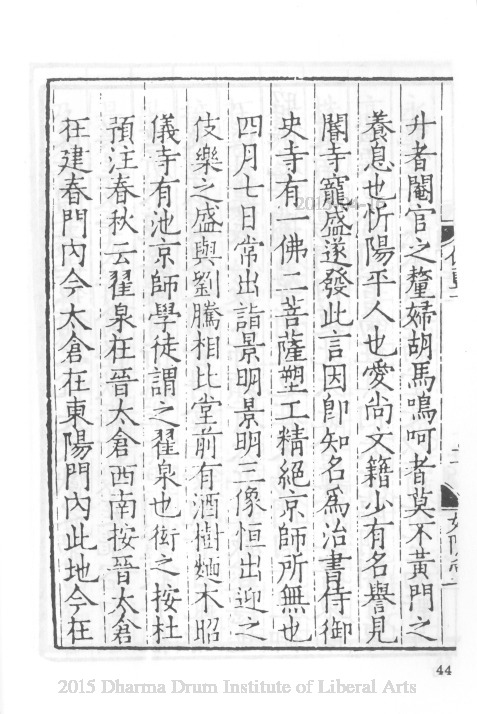 升者閹官之釐婦胡馬鳴呵者莫不黃門之
養息也忻陽平人也愛尚文籍少有名譽見
閹寺寵盛遂發此言因即知名為治書侍御
史寺有一佛二菩薩塑工精絕京師所無也
四月七日常出詣景明景明三像恒出迎之
伎樂之盛與劉騰相比堂前有酒樹麵木昭
儀寺有池京師學徒謂之翟泉也衒之按杜
預注春秋云翟泉在晉太倉西南按晉太倉
在建春門內今太倉在東陽門內此地今在
44
2015 Dharma Drum Institute of Liberal Arts